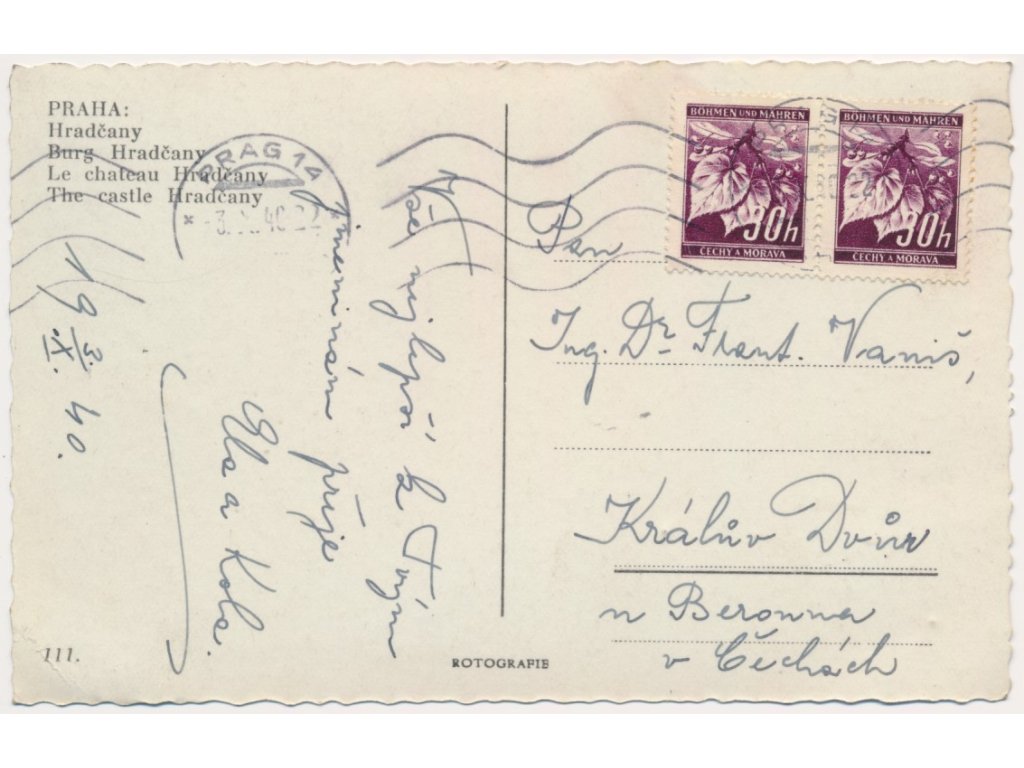 PRAHA:
Hradčany
Burg Hradčany
Le chateau Hradčany
The castle Hradčany
PRAG 14
BÖHMEN UND MÄHREN
30h
ČECHY A MORAVA
BÖHMEN UND MÄHREN
30h
ČECHY A MORAVA
Vše nejlepší k Tvým
jmeninám přeje
Ela a Kola.
19 3./X. 40.
Pan
Ing. Dr. Frant. Vaniš,
Králův Dvůr
u Berouna
v Čechách
111.
ROTOGRAFIE